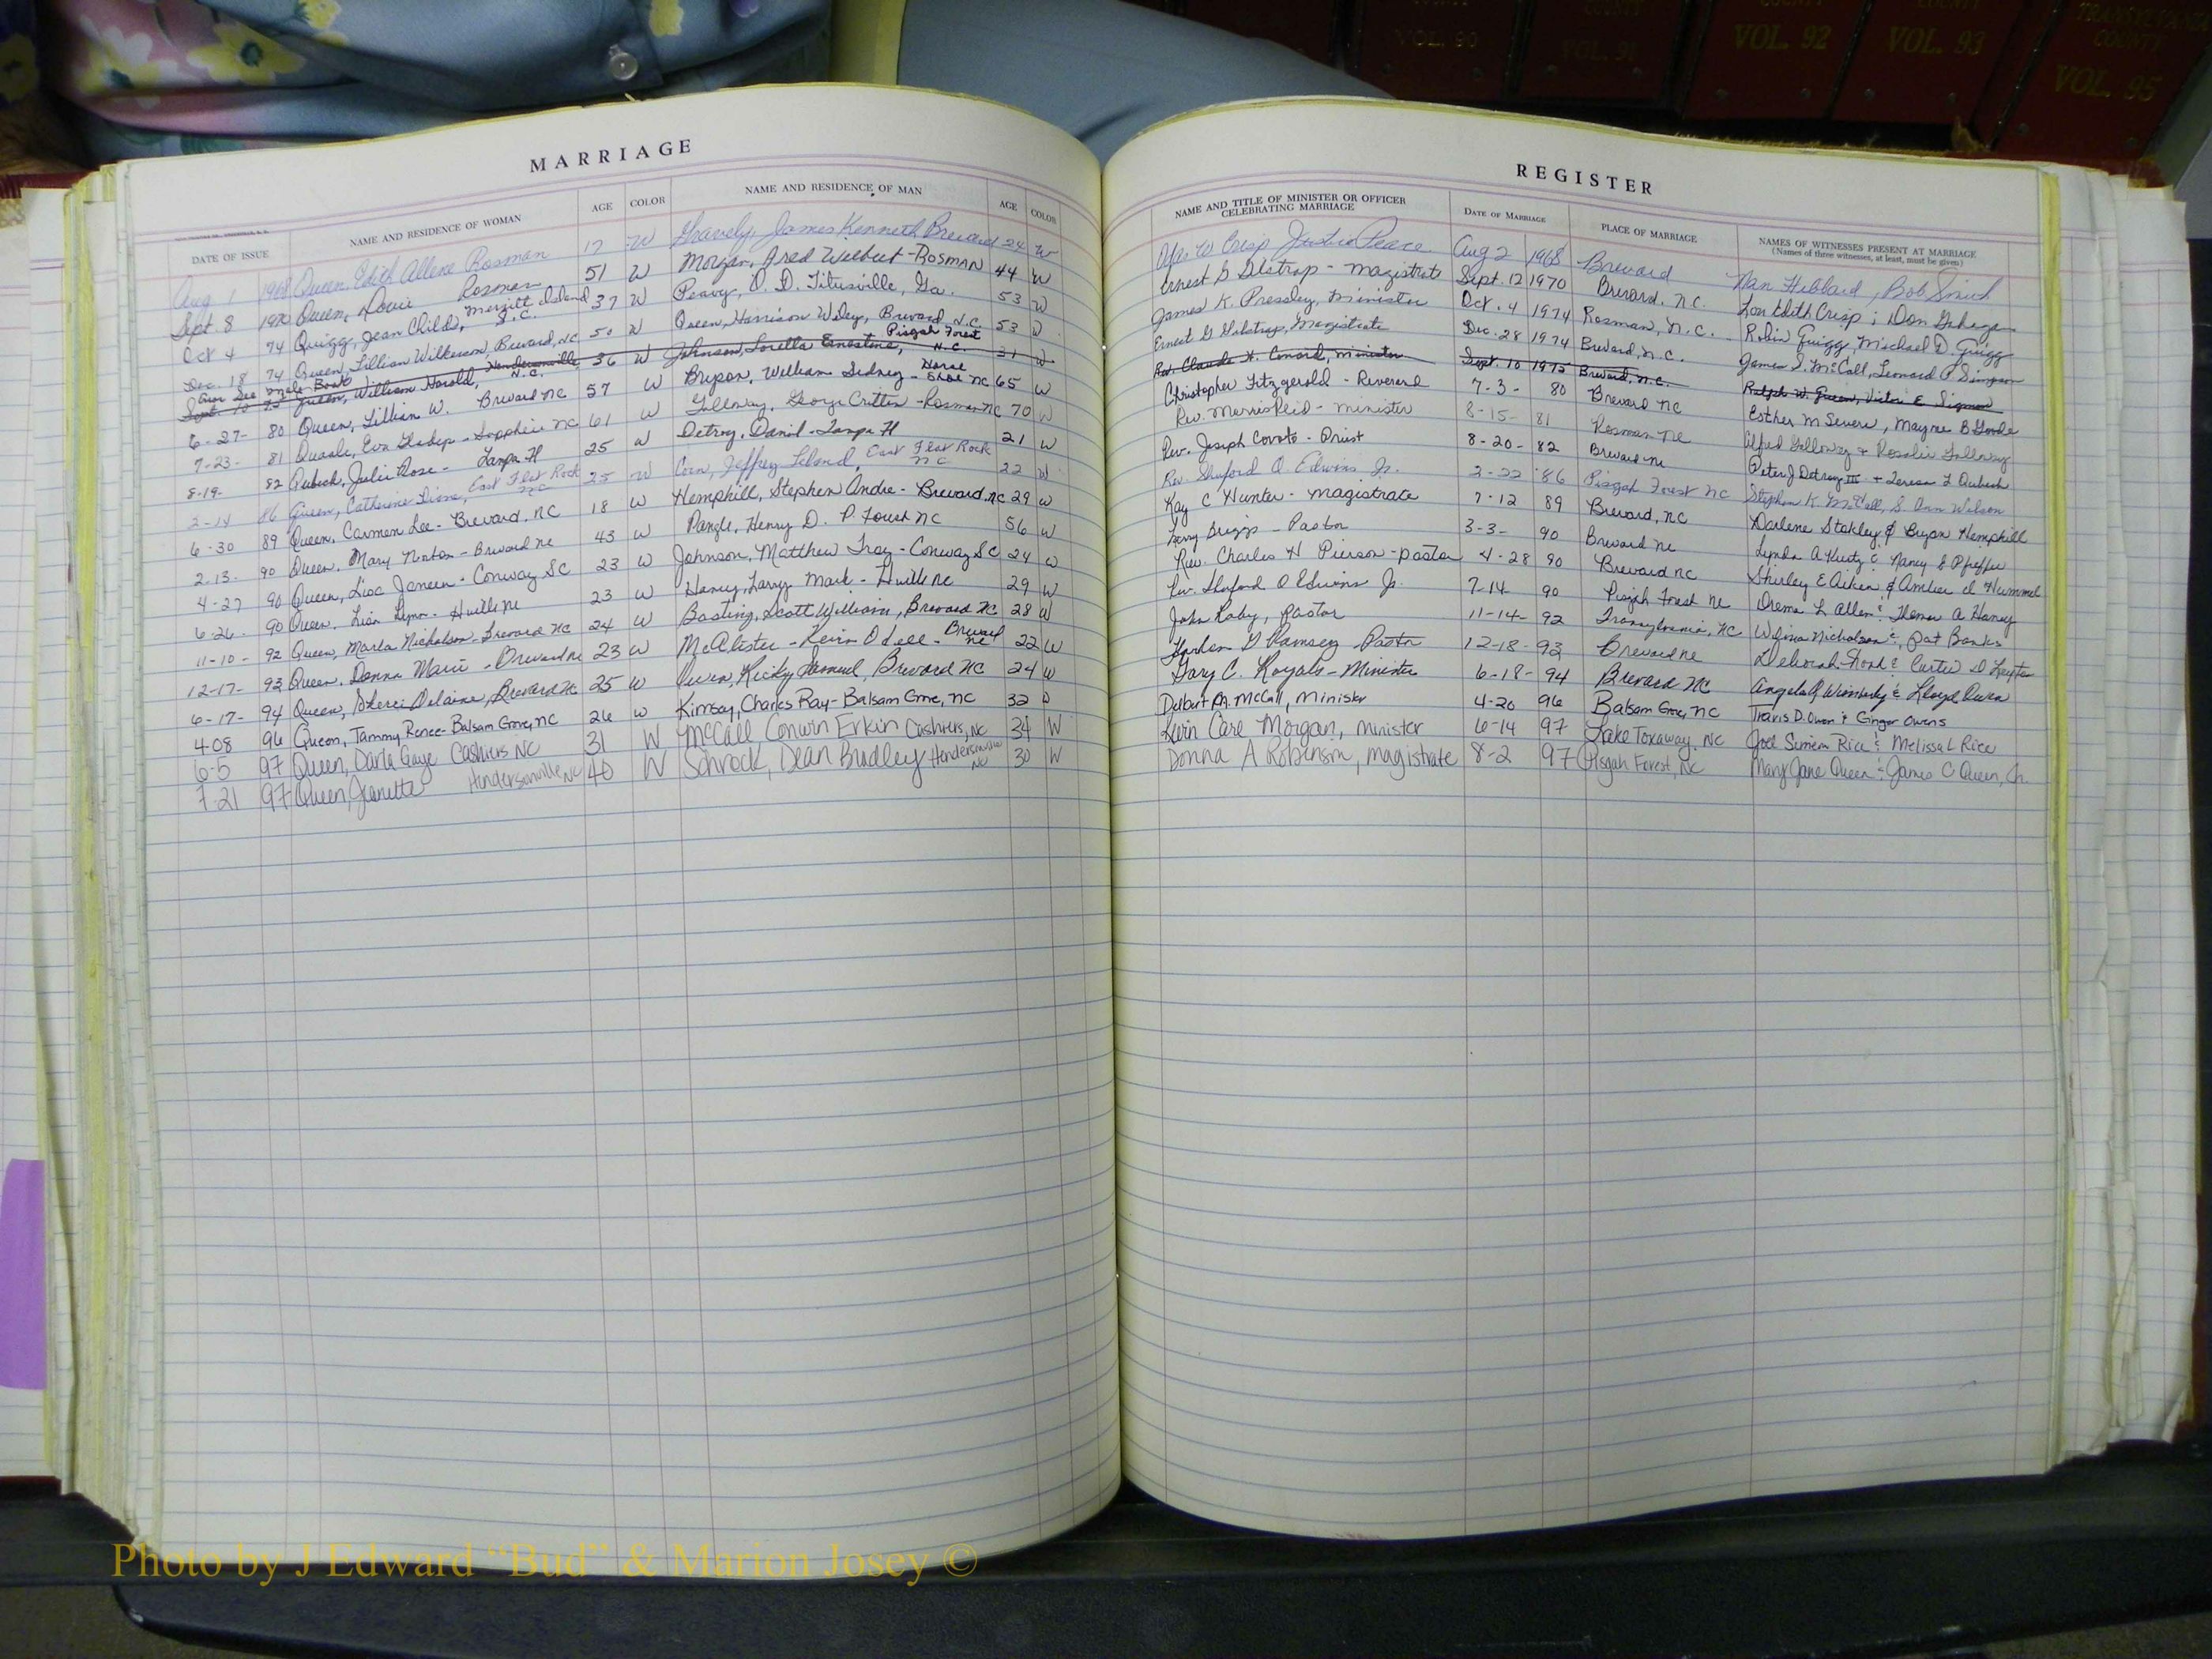 COUNTY
VOL. 90
COUNTY
VOL. 91
COUNTY
VOL. 92
COUNTY
VOL. 93
TRANSYLVANIA
COUNTY
VOL. 95
MARRIAGE
DATE OF ISSUE NAME AND RESIDENCE OF WOMAN AGE COLOR NAME AND RESIDENCE OF MAN AGE COLOR
Aug 1 1968 Queen, Edith Allene Rosman 17 W Gravely, James Kenneth Brevard 24 W
Sept 8 1970 Queen, Dovie Rosman 51 W Morgan, Fred Wilbert - ROSMAN 44 W
Oct 4 74 Quigg, Jean Childs, Merritt Island 37 W Peavy, O. D. Titusville, Ga. 53 W
Dec. 18 74 Queen, Lillian Wilkerson, Brevard, NC 50 W Queen, Harrison Wiley, Brevard N.C. 53 W
Sept 10 75 Queen, William Harold, Hendersonville, N.C. 36 W Johnson, Loretta Ernestine, Pisgah Forest N.C. 31 W
6-27- 80 Queen, Lillian W. Brevard NC 57 W Bryson, William Sidney - Horse Shoe NC 65 W
7-23- 81 Queale, Eva Gladys - Sapphire NC 61 W Galloway, George Crittin - Rosman NC 70 W
8-19- 82 Qubeck, Julie Rose - Tampa Fl 25 W Detroy, Daniel - Tampa Fl 21 W
2-14 86 Queen, Catherine Diane, East Flat Rock NC 25 W Corn, Jeffrey Leland, East Flat Rock NC 22 W
6-30 89 Queen, Carmen Lee - Brevard, NC 18 W Hemphill, Stephen Andre - Brevard, NC 29 W
2-13- 90 Queen, Mary Norton - Brevard NC 43 W Pangle, Henry D. P. Forest NC 56 W
4-27 90 Queen, Lisa Janeen - Conway SC 23 W Johnson, Matthew Troy - Conway SC 24 W
6-26- 90 Queen, Lisa Lynn - Hville NC 23 W Haney, Larry Mark - Hville NC 29 W
11-10- 92 Queen, Marla Nicholson - Brevard NC 24 W Basting, Scott William, Brevard NC 28 W
12-17- 93 Queen, Donna Marie - Brevard NC 23 W McAlister - Kevin Odell - Brevard NC 22 W
6-17- 94 Queen, Sherri Delaine, Brevard NC 25 W Owen, Ricky Samuel, Brevard NC 24 W
4-08 96 Queen, Tammy Renee - Balsam Grove, NC 26 W Kimsey, Charles Ray - Balsam Grove, NC 32 W
6-5 97 Queen, Darla Gaye Cashiers NC 31 W McCall Conwin Erkin Cashiers, NC 34 W
7-21 97 Queen, Jeanette Hendersonville NC 40 W Schrock, Dean Bradley Hendersonville NC 30 W
REGISTER
NAME AND TITLE OF MINISTER OR OFFICER CELEBRATING MARRIAGE DATE OF MARRIAGE PLACE OF MARRIAGE NAMES OF WITNESSES PRESENT AT MARRIAGE
(Names of three witnesses, at least, must be given)
W Crisp Justice Peace Aug 2 1968 Brevard Nan Hibbard, Bob Smith
Ernest G Gilstrap - Magistrate Sept. 12 1970 Brevard, N.C. Lou Edith Crisp; Don
James K. Pressley, Minister Oct. 4 1974 Rosman, N.C. Robin Quigg, Michael D. Quigg
Ernest G Gilstrap, Magistrate Dec. 28 1974 Brevard, N.C. James S. McCall, Leonard P Simpson
Rev. Claude H. Conard, Minister Sept. 10 1975 Brevard, N.C. Ralph W. Queen, Victor E Sigmon
Christopher Fitzgerald - Reverend 7-3- 80 Brevard NC Esther M Severs, Mayme B
Rev. Merris Reid - Minister 8-15- 81 Rosman NC Alfred Galloway & Rosalie Galloway
Rev. Joseph - Priest 8-20- 82 Brevard NC Peter J Detroy III + Teresa L Qubeck
Rev. Shuford A. Edwins Jr. 2-22 '86 Pisgah Forest NC Stephen K McCall, S. Ann Wilson
Kay C Hunter - Magistrate 7-12 89 Brevard, NC Darlene Stokley & Bryan Hemphill
Jerry Griggs - Pastor 3-3- 90 Brevard NC Lynda A & Nancy
Rev. Charles H Pierson - pastor 4-28 90 Brevard NC Shirley E Aiken & Amber Hummel
Rev. Shuford A Edwins Jr. 7-14 90 Pisgah Forest NC Orema L Allen & A Haney
John Raby, Pastor 11-14- 92 Transylvania, NC Wilma Nicholson & Pat Banks
D Ramsey Pastor 12-18- 93 Brevard NC Deborah & Curtis
Gary C. Royals - Minister 6-18- 94 Brevard NC Angela & Lloyd Owen
Delbert A. McCall, Minister 4-20 96 Balsam Grove, NC Travis D. Owen & Ginger Owens
Kevin Care Morgan, Minister 6-14 97 Lake Toxaway, NC Joel Simeon Rice & Melissa L Rice
Donna A Robinson, magistrate 8-2 97 Pisgah Forest, NC Mary Jane Queen & James C Queen, Jr.
Photo by J Edward “Bud” & Marion Josey ©